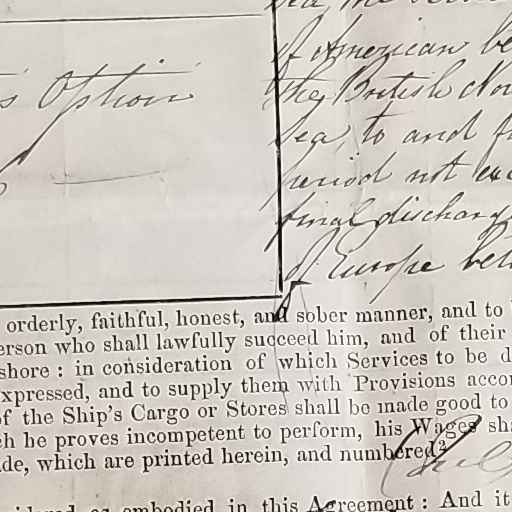 of American be
's Option
the British No
Sea, to and f
period not exc
final discharg
of Europe bet
orderly, faithful, honest, and sober manner, and to
erson who shall lawfully succeed him, and of their
shore : in consideration of which Services to be d
xpressed, and to supply them with Provisions accor
of the Ship's Cargo or Stores shall be made good to
ch he proves incompetent to perform, his Wages sh
de, which are printed herein, and numbered
as embodied in this Agreement : And it